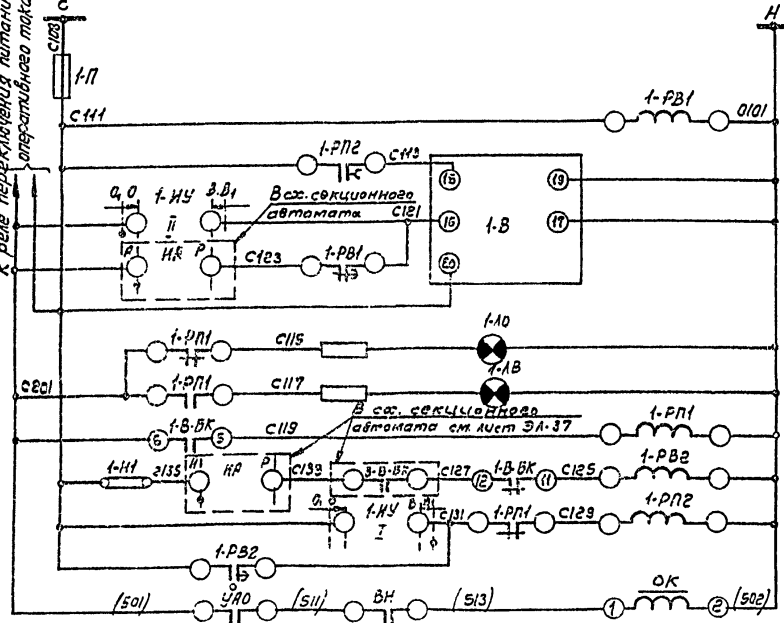 С
Н
К реле переключения питания
оперативного тока
С103
1-П
С111
1-РВ1
0101
1-РП2
С113
15
19
О₁ О
1-ИУ
В В₁
II
В сх. секционного
автомата
С121
16
17
1-В
20
Р
КА
Р
С123
1-РВ1
1-РП1
С115
1-ЛО
С201
1-РП1
С117
1-ЛВ
В сх. секционного
автомата см. лист ЭЛ-37
6
1-В-БК
5
С119
1-РП1
1-Н1
2135
КА
Р
С133
3-В-БК
С127
12
1-В-БК
11
С125
1-РВ2
О₁
1-ИУ
I
С131
1-РП1
С129
1-РП2
1-РВ2
(501)
УАО
(511)
ВН
(513)
1
ОК
2
(502)